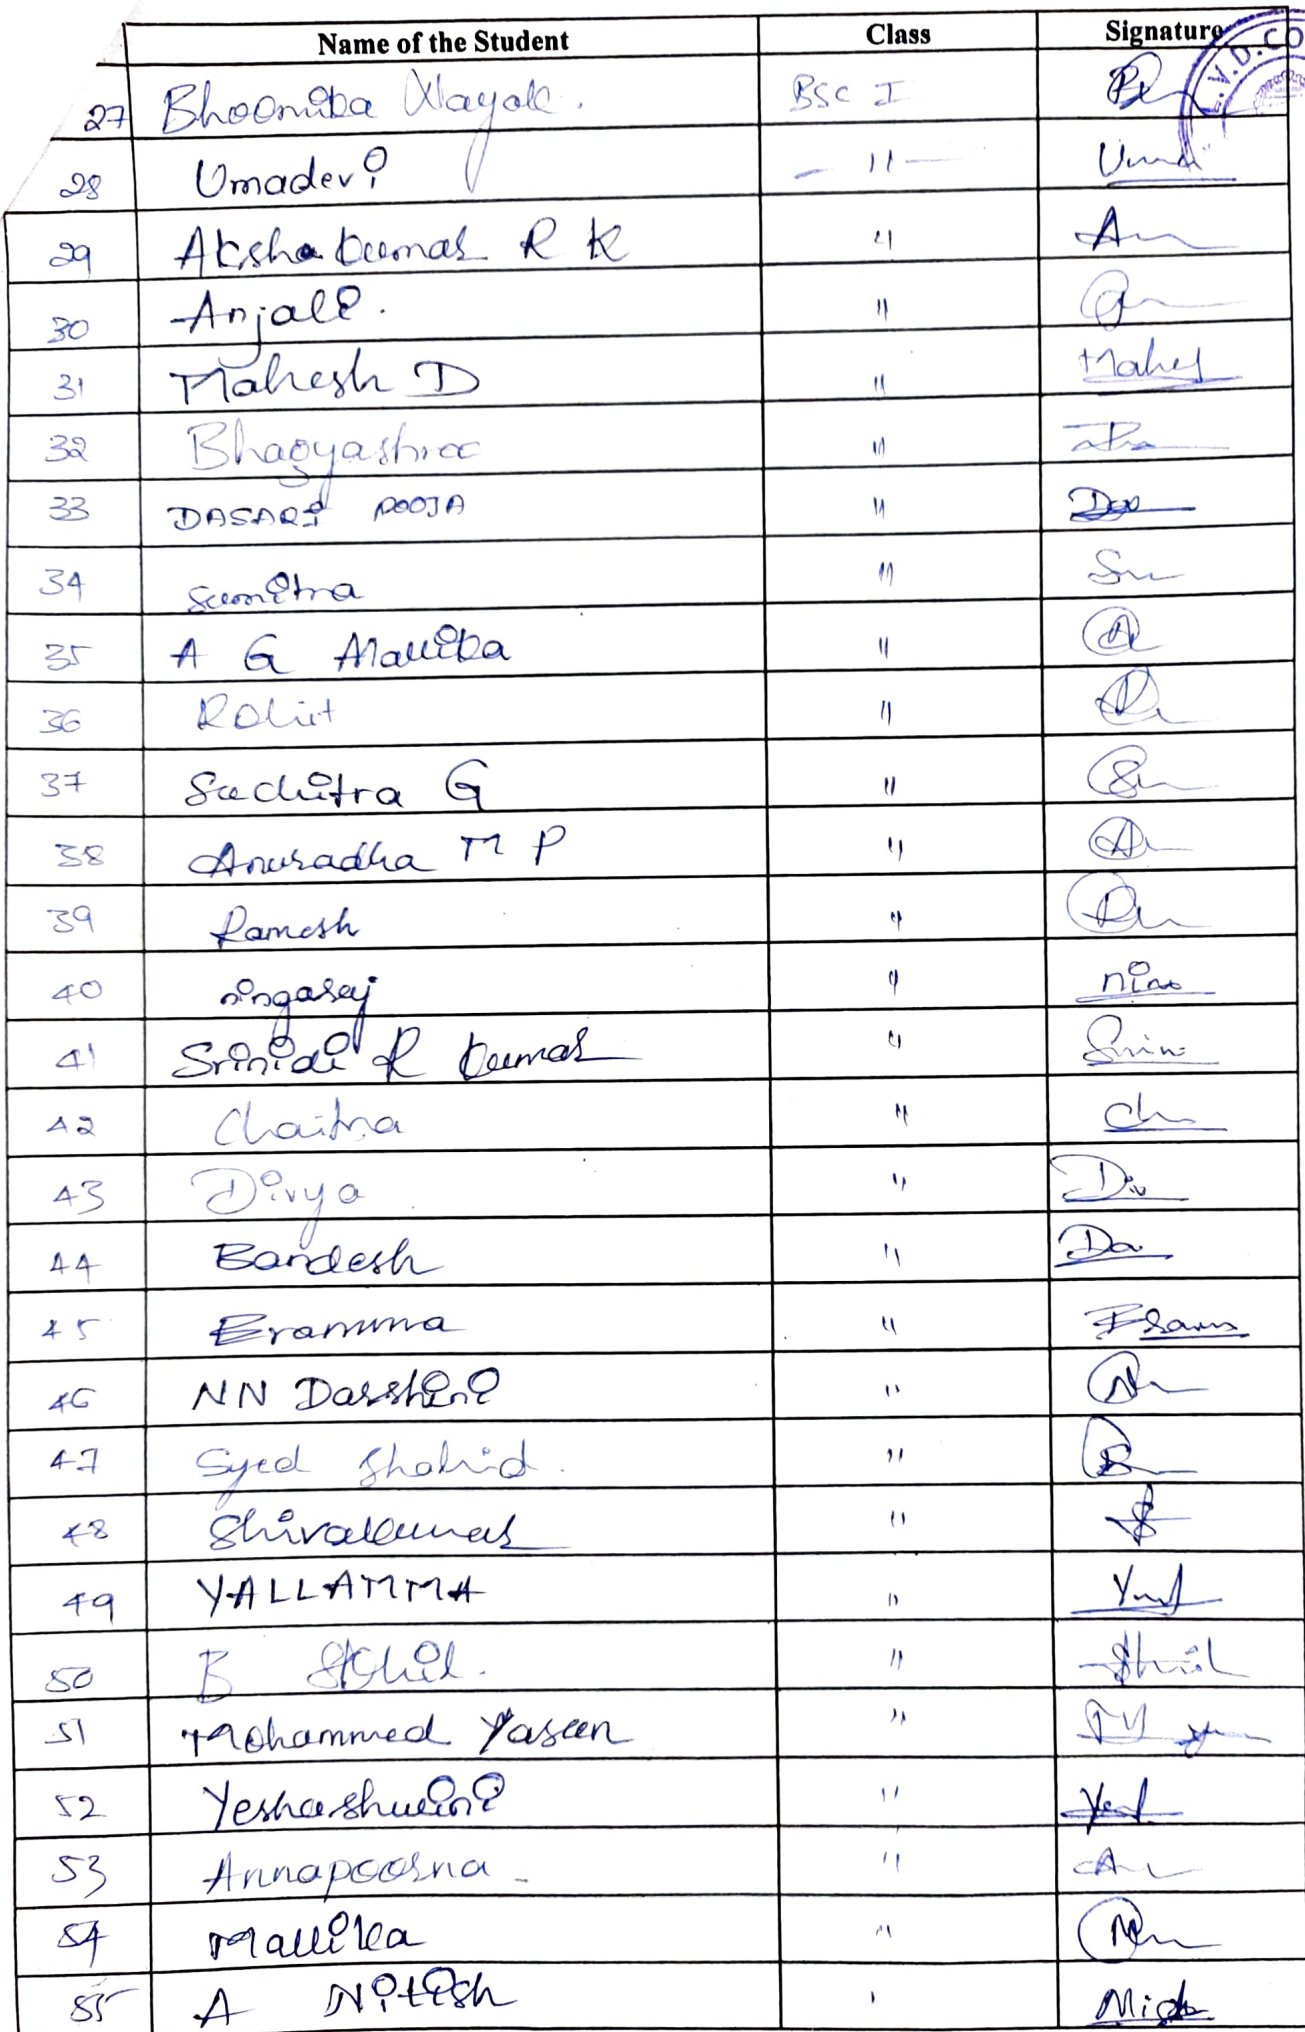 Name of the Student Class Signature
.V.D.CO
27 Bhoomika Nayak. BSC I
28 Umadevi - 11 - Uma
29 Akshakumar R K "
30 Anjali. "
31 Mahesh D " Mahes
32 Bhagyashree "
33 DASARI POOJA "
34 Sumitra " Su
35 A G Mallika " A
36 Rohit "
37 Suchitra G "
38 Anuradha M P "
39 Ramesh "
40 ningaraj " nin
41 Srinidi R kumar "
42 Chaitra " Ch
43 Divya " Div
44 Bandesh "
45 Eramma "
46 NN Darshini "
47 Syed Shahid. "
48 Shivakumar "
49 YALLAMMA "
50 B "
51 Mohammed Yaseen "
52 Yeshashwini "
53 Annapoorna - "
54 Mallika "
55 A Nitish '